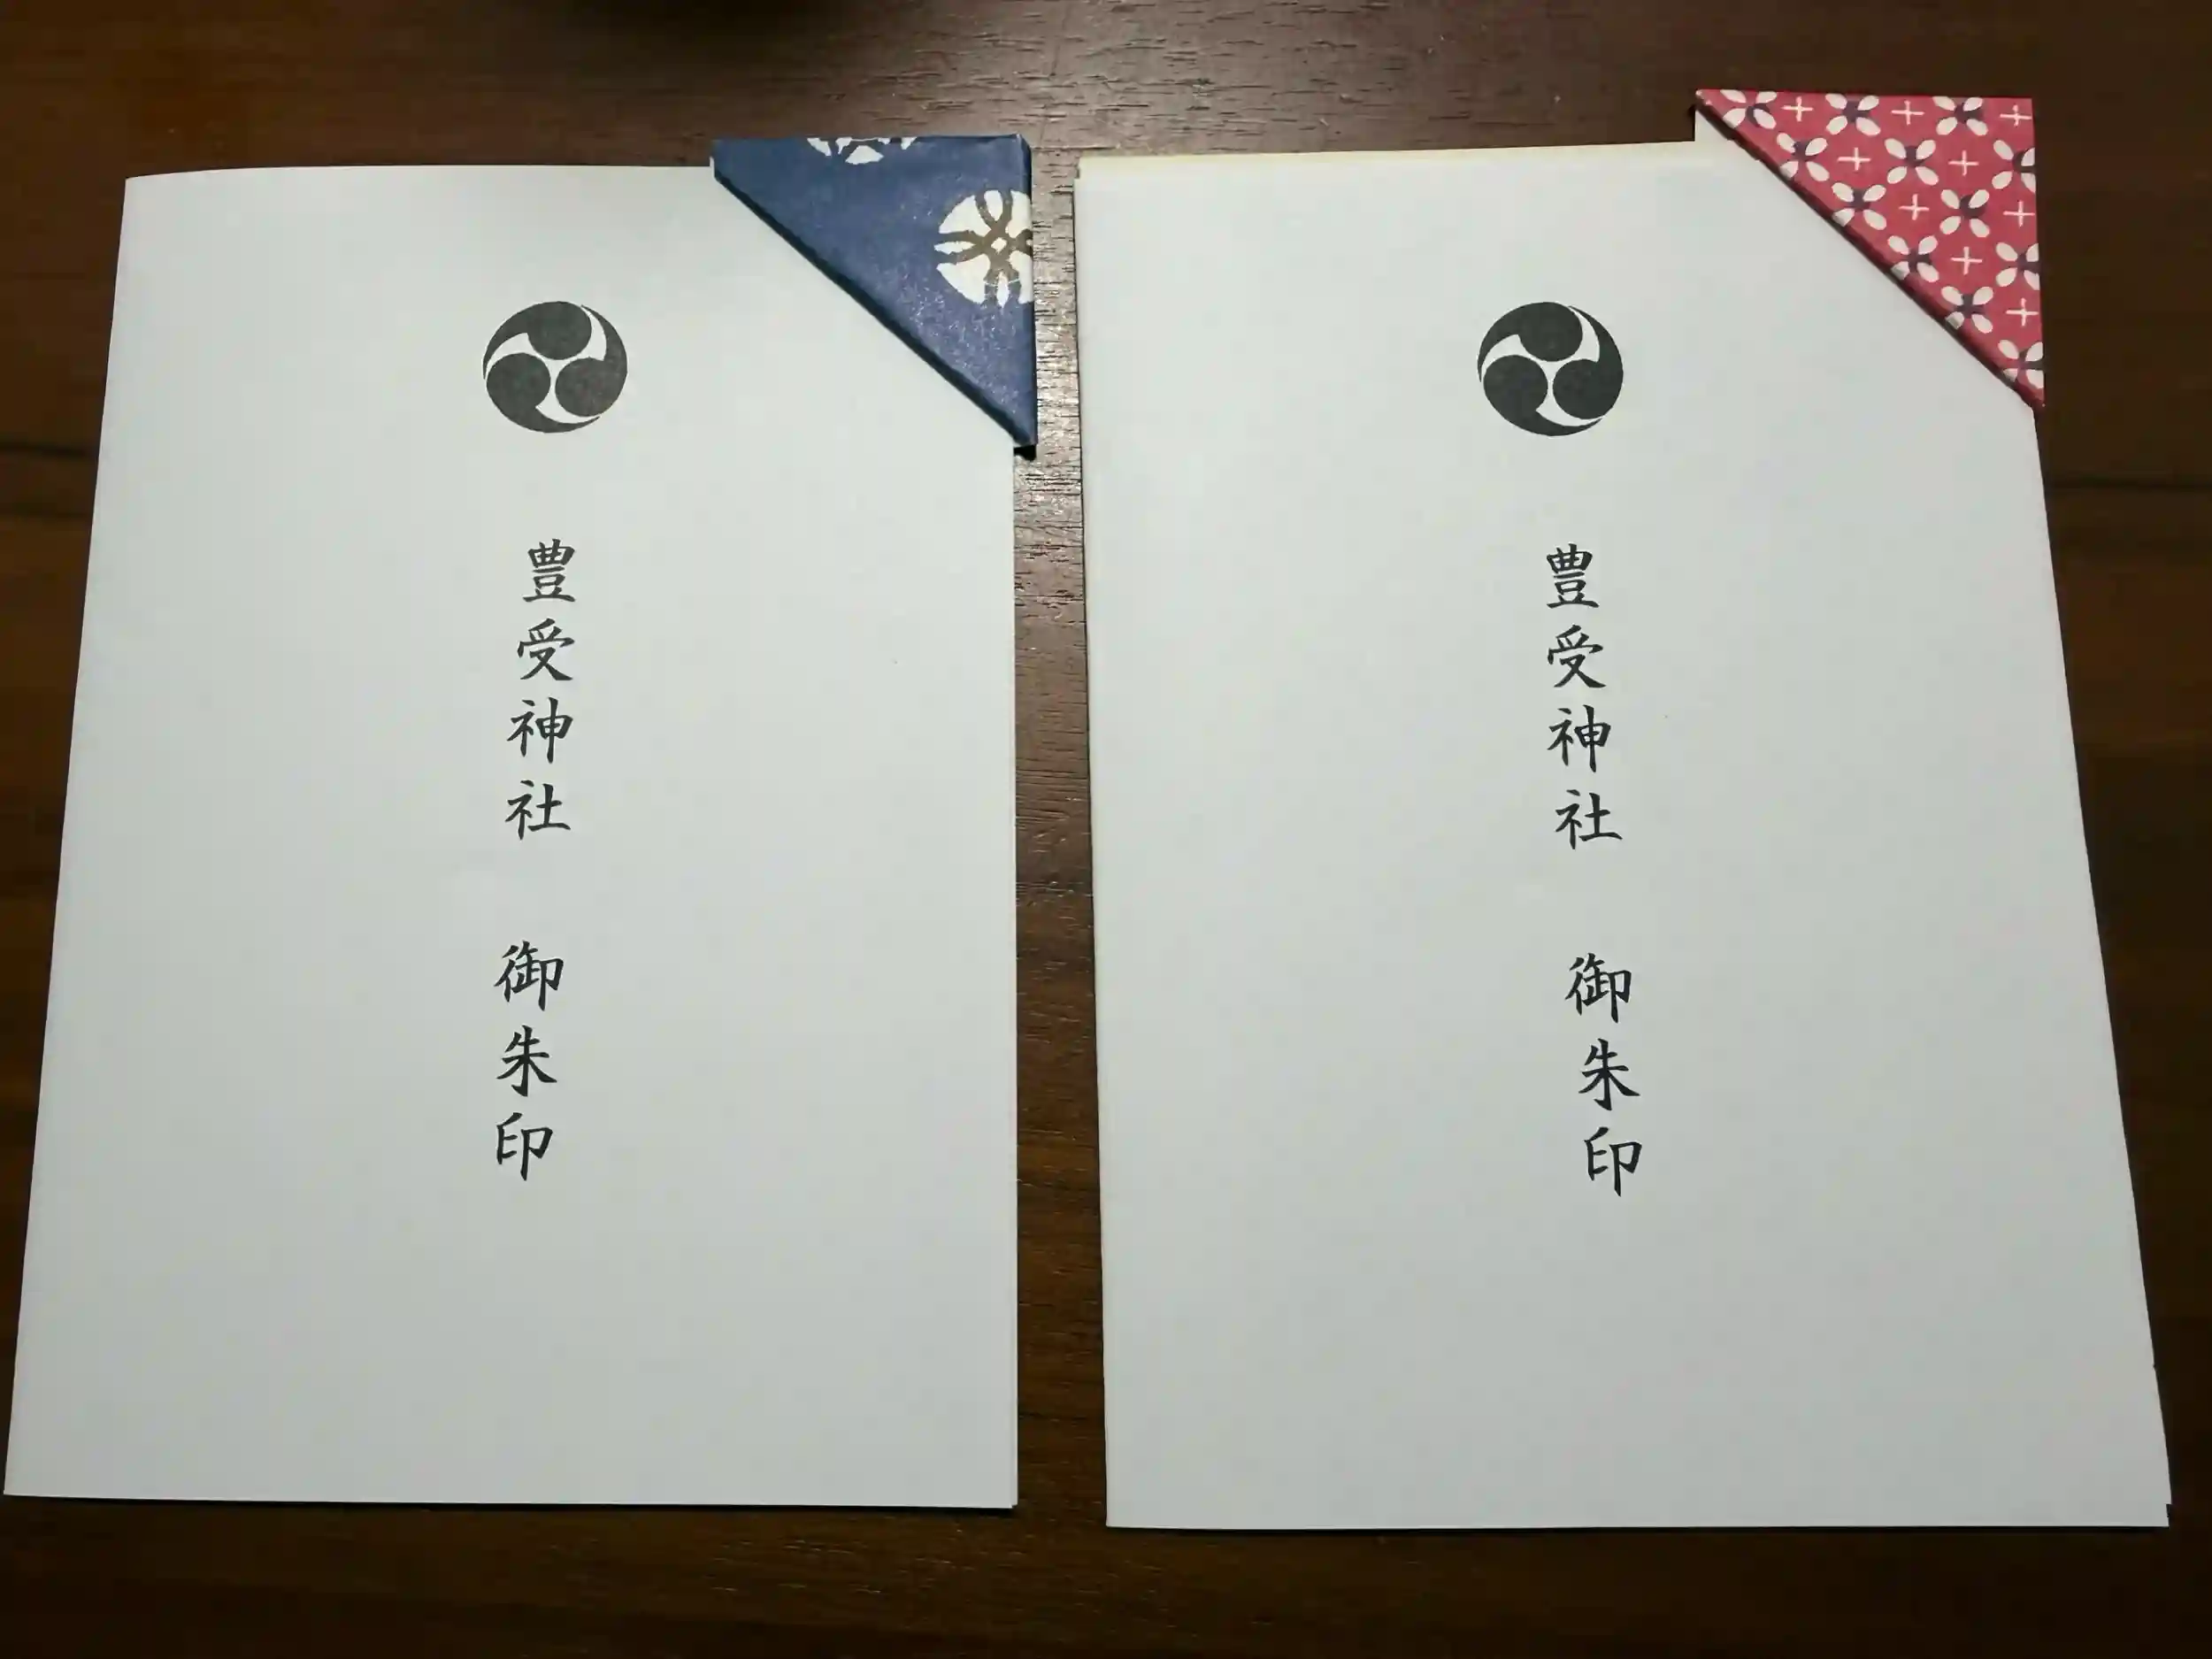 豊受神社 御朱印
豊受神社 御朱印